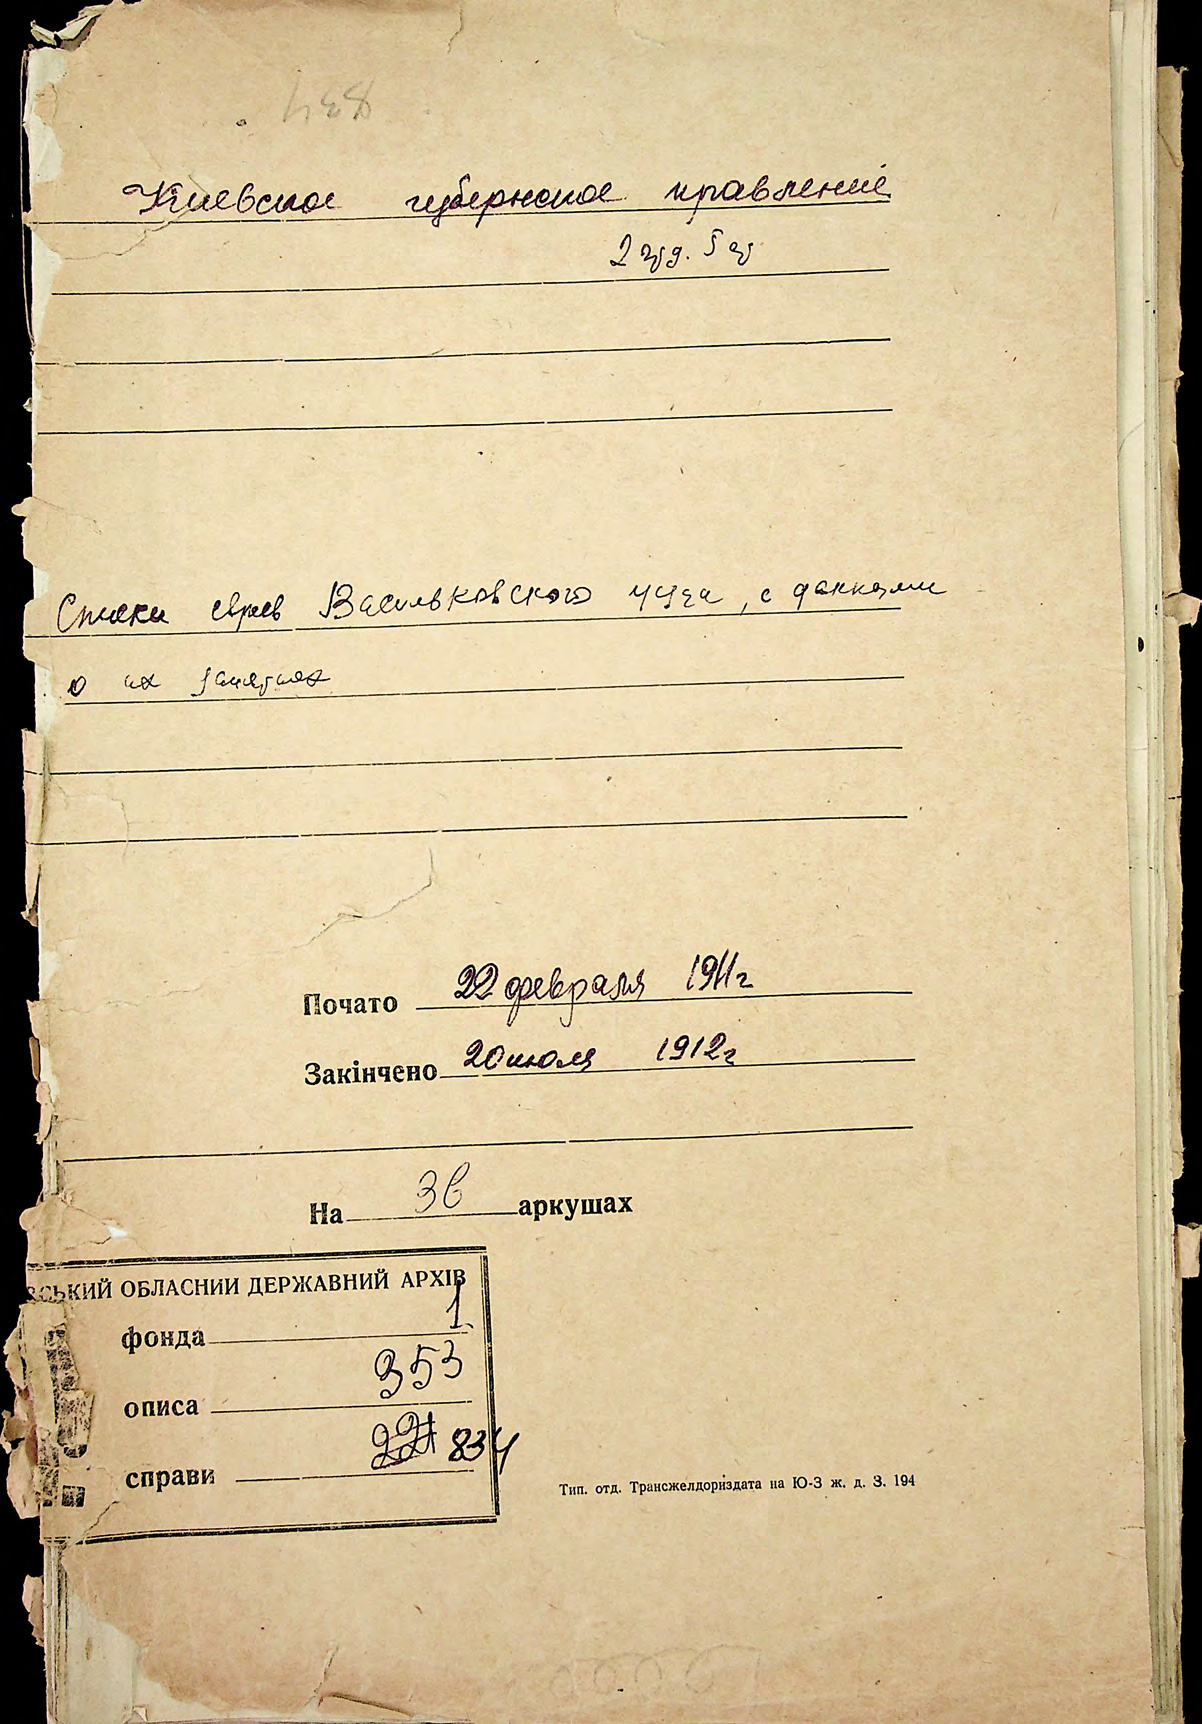 834
Киевское губернское правление
2
Списки евреев Васильковского уезда, с данными
о их занятиях
Почато 22 февраля 1911г
Закінчено 20 июля 1912г
На 36 аркушах
СЬКИЙ ОБЛАСНИЙ ДЕРЖАВНИЙ АРХІВ
фонда 1
описа 353
справи 221 834
Тип. отд. Трансжелдоріздата на Ю-З ж. д. З. 194